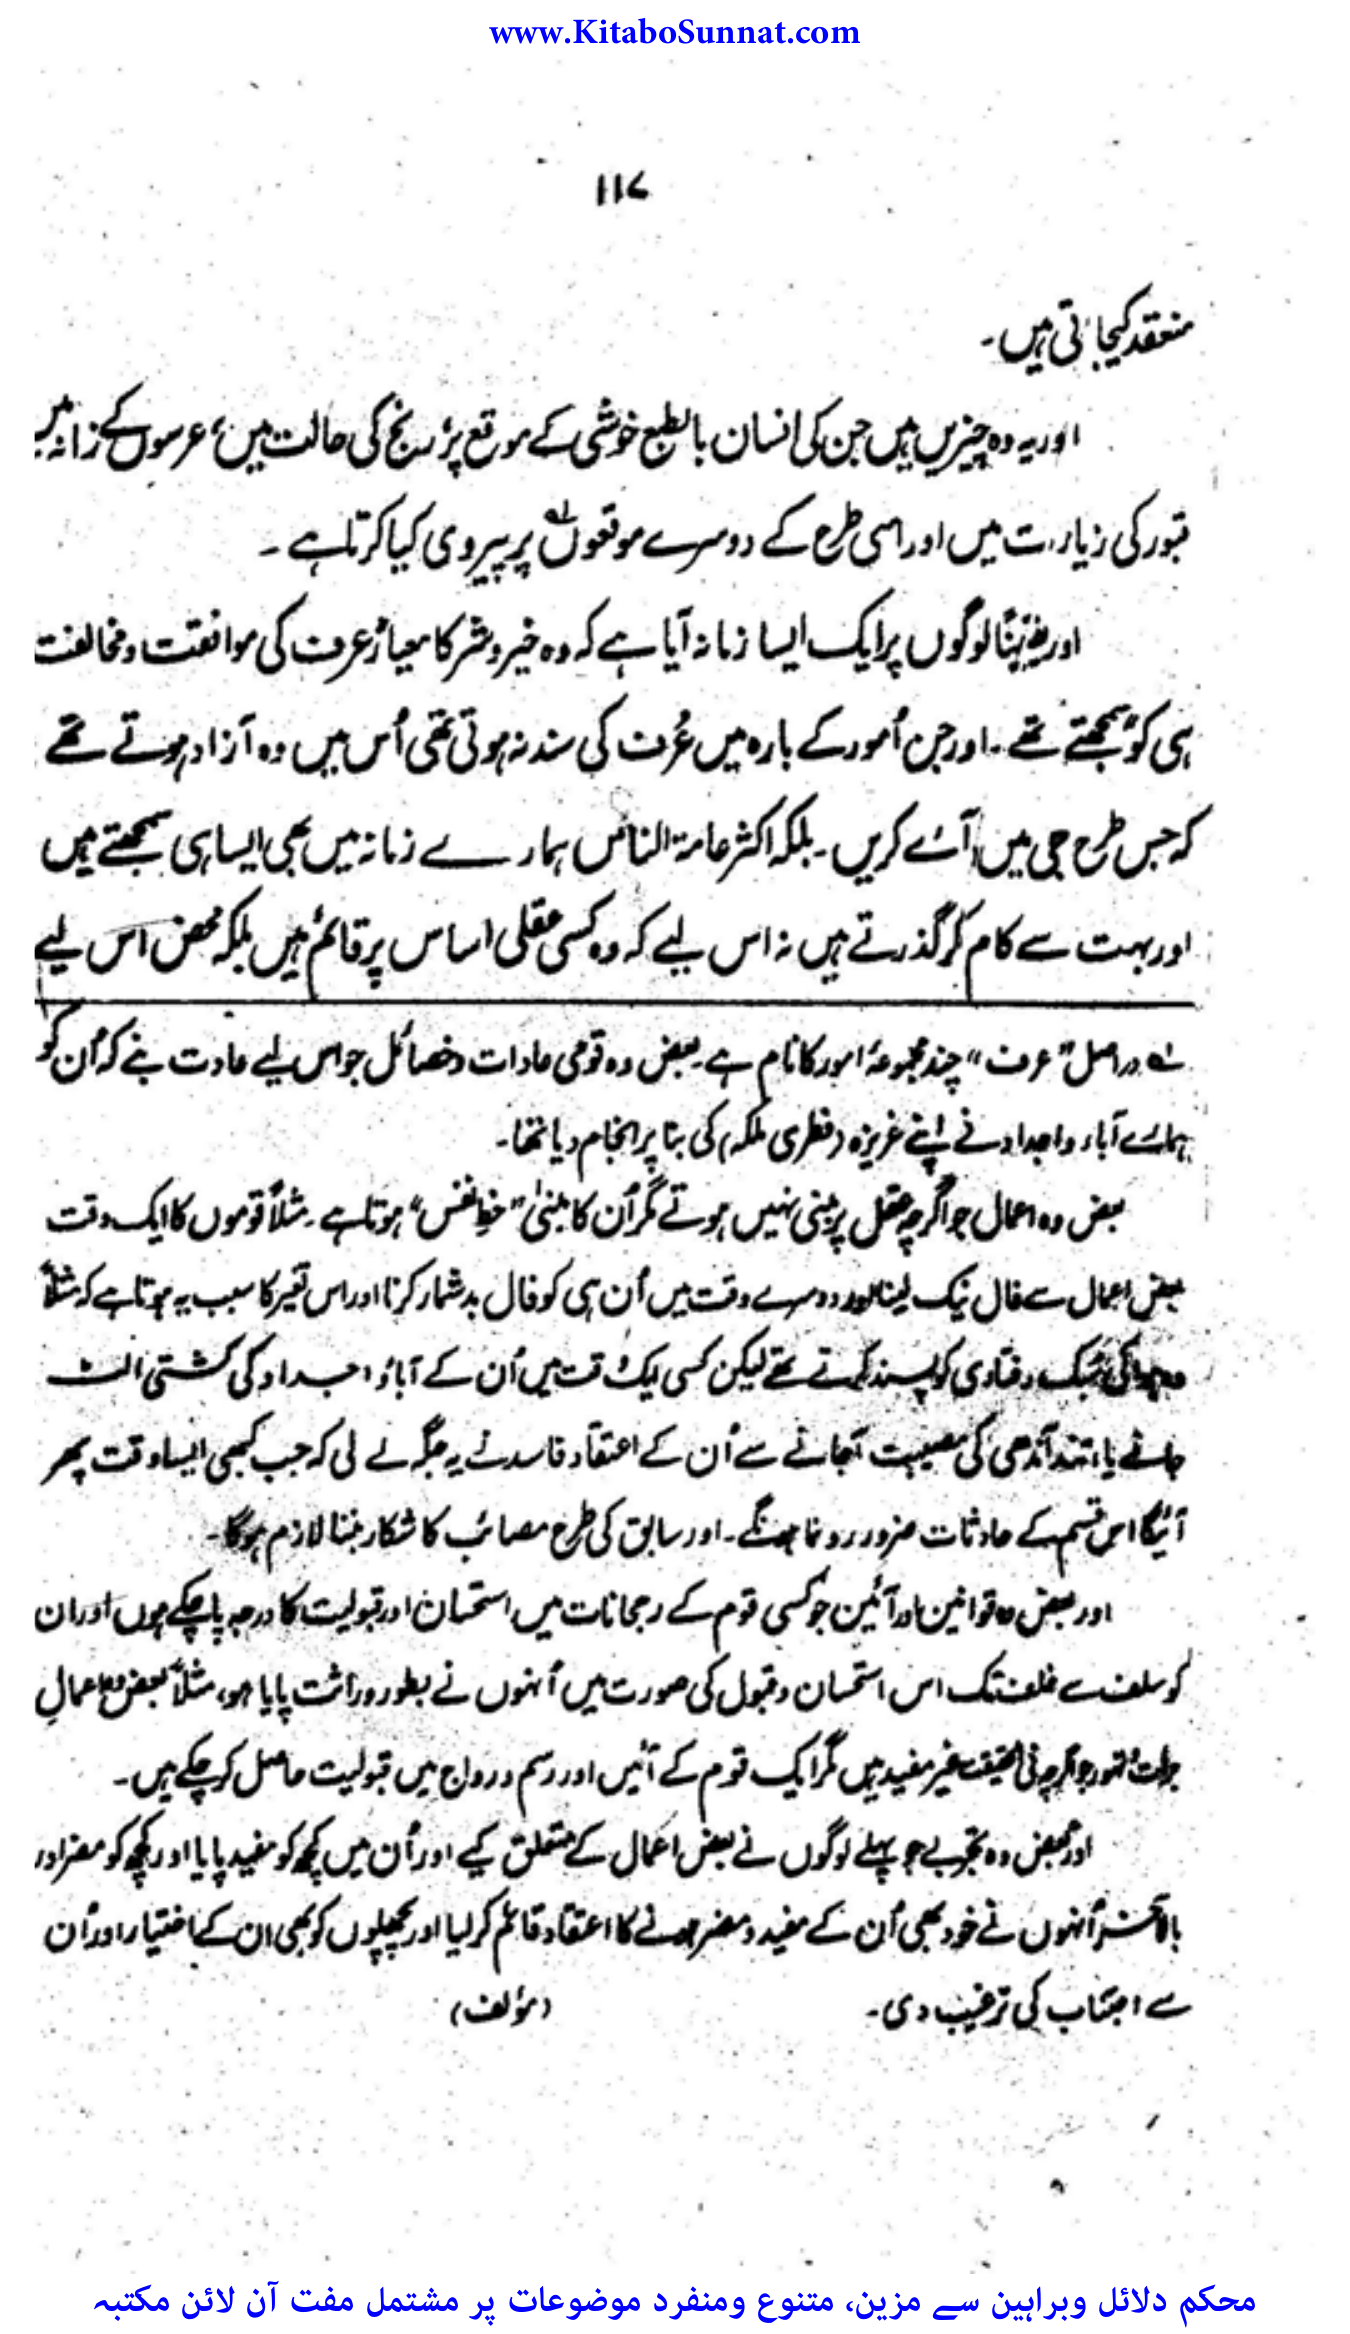 www.KitaboSunnat.com
۱۱۷
منعقد کیجاتی ہیں۔
اور یہ وہ چیزیں ہیں جن کی انسان بالطبع خوشی کے موقع پر، رنج کی حالت میں، عرسوں کے زمانہ میں
قبور کی زیارت میں اور اسی طرح کے دوسرے موقعوں لہ پر پیروی کیا کرتا ہے ۔
اور یقیناً لوگوں پر ایک ایسا زمانہ آیا ہے کہ وہ خیر و شر کا معیار "عرف کی موافقت و مخالفت
ہی کو" سمجھتے تھے۔ اور جن اُمور کے بارہ میں عُرف کی سند نہ ہوتی تھی اُس میں وہ آزاد ہوتے تھے
کہ جس طرح جی میں آئے کریں۔ بلکہ اکثر عامۃ الناس ہمارے زمانہ میں بھی ایسا ہی سمجھتے ہیں
اور بہت سے کام کر گذرتے ہیں نہ اس لیے کہ وہ کسی عقلی اساس پر قائم ہیں بلکہ محض اس لیے
لہ دراصل "عرف" چند مجموعۂ امور کا نام ہے۔ بعض وہ قومی عادات و خصائل جو اس لیے عادت بنے کہ اُن کو
ہمارے آباء و اجداد نے اپنے غریزہ (فطری ملکہ) کی بنا پر انجام دیا تھا۔
بعض وہ اعمال جو اگرچہ عقل پر مبنی نہیں ہوتے مگر اُن کا مبنیٰ "حظِ نفس" ہوتا ہے۔ مثلاً قوموں کا ایک وقت
بعض اعمال سے فال نیک لینا اور دوسرے وقت میں اُن ہی کو فال بد شمار کرنا اور اس تغیر کا سبب یہ ہوتا ہے کہ مثلاً
وہ ہوا کی سبک رفتاری کو پسند کرتے تھے لیکن کسی ایک وقت میں اُن کے آباء و اجداد کی کشتی الٹ
جانے یا تند آندھی کی مصیبت آجانے سے اُن کے اعتقاد فاسد نے یہ جگہ لے لی کہ جب کبھی ایسا وقت پھر
آئیگا اس قسم کے حادثات ضرور رونما ہونگے۔ اور سابق کی طرح مصائب کا شکار بننا لازم ہوگا۔
اور بعض وہ قوانین اور آئین جو کسی قوم کے رجحانات میں استحسان اور قبولیت کا درجہ پا چکے ہوں اور ان
کو سلف سے خلف تک اس استحسان و قبول کی صورت میں اُنہوں نے بطور وراثت پایا ہو، مثلاً بعض وہ اعمالِ
جو اگرچہ فی الحقیقت غیر مفید ہیں مگر ایک قوم کے آئین اور رسم و رواج میں قبولیت حاصل کر چکے ہیں۔
اور بعض وہ تجربے جو پہلے لوگوں نے بعض اعمال کے متعلق کیے اور اُن میں کچھ کو مفید پایا اور کچھ کو مضر اور
بالآخر اُنہوں نے خود بھی اُن کے مفید و مضر ہونے کا اعتقاد قائم کر لیا اور پچھلوں کو بھی ان کے اختیار اور اُن
سے اجتناب کی ترغیب دی۔ (مؤلف)
محکم دلائل وبراہین سے مزین، متنوع ومنفرد موضوعات پر مشتمل مفت آن لائن مکتبہ